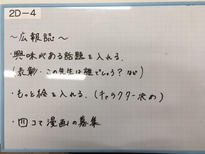 2D-4
〜広報誌〜
・興味がある話題を入れる。
(表彰・この先生は誰でしょう?など)
・もっと絵を入れる。(キャラクター決め)
・四コマ漫画の募集